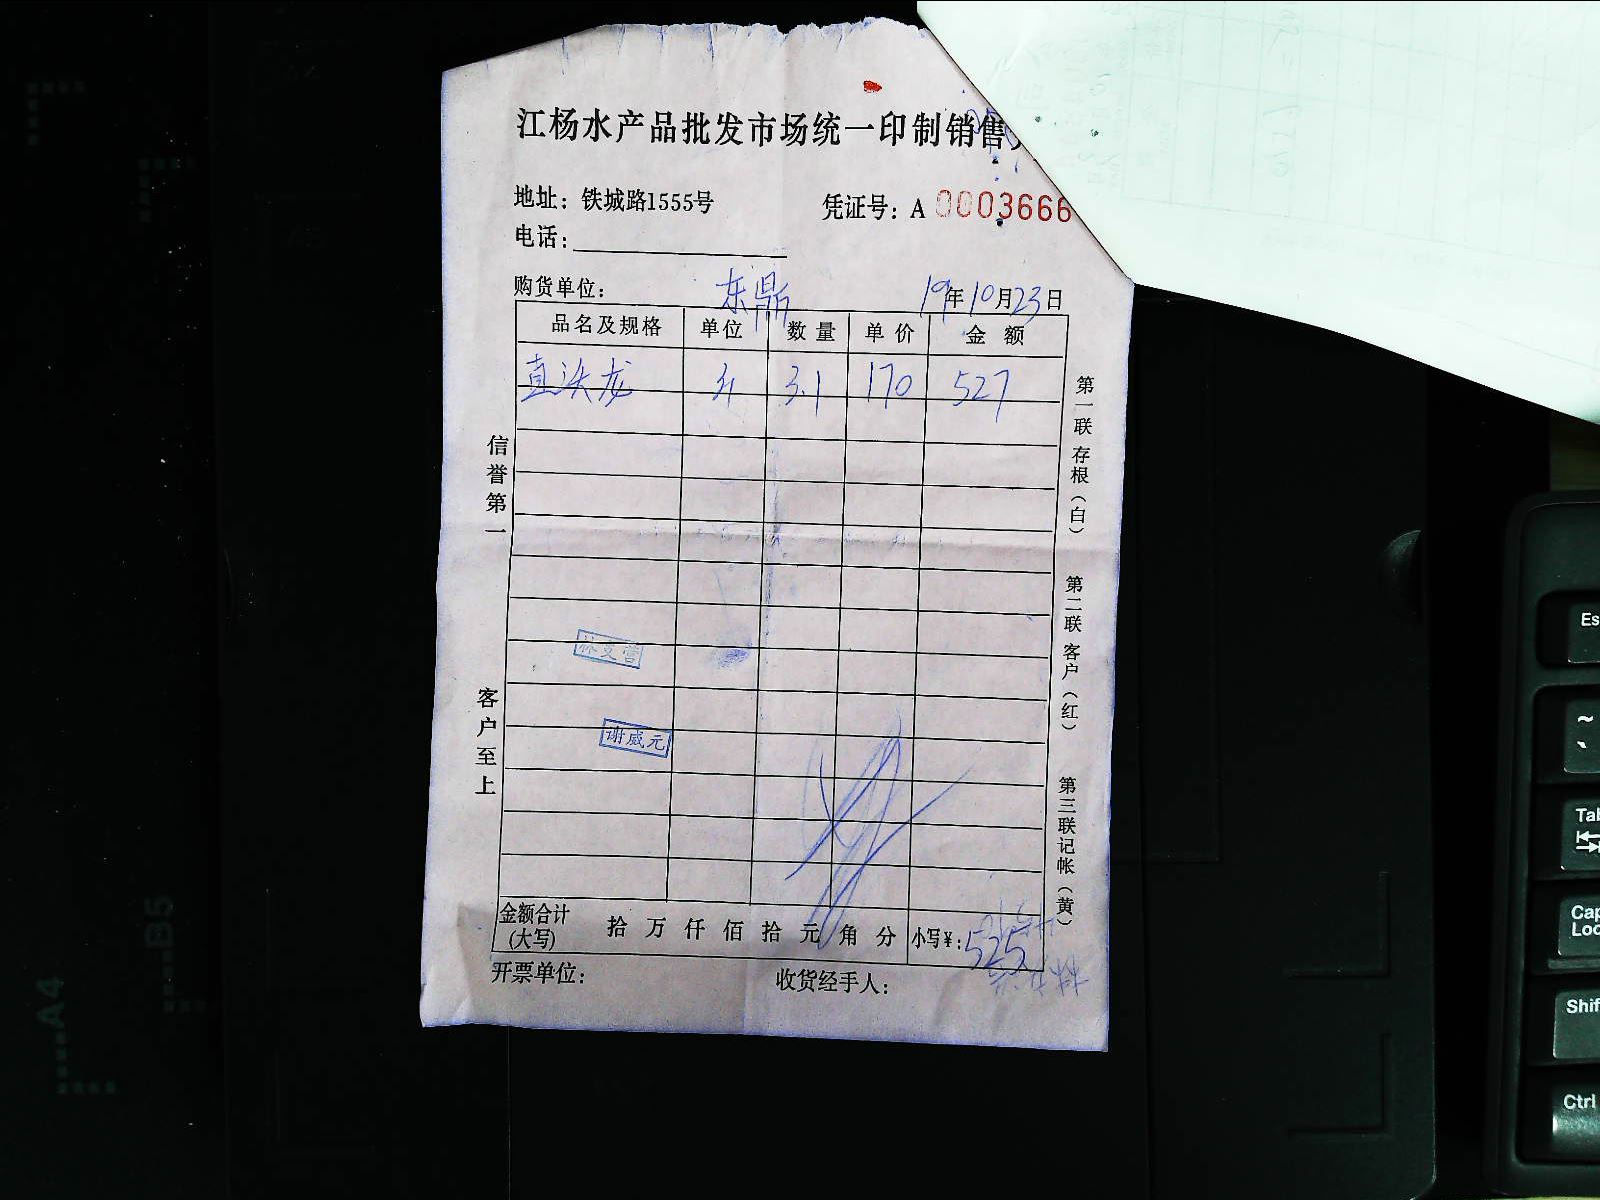 江杨水产品批发市场统一印制销售
地址：铁城路1555号
凭证号：A 0003666
电话：
购货单位：东鼎
19年10月23日
品名及规格 单位 数量 单价 金额
直头龙 斤 3.1 170 527
信誉第一
客户至上
第一联 存根（白）
第二联 客户（红）
第三联 记帐（黄）
谢威元
金额合计(大写) 拾 万 仟 佰 拾 元 角 分 小写¥：525
开票单位：
收货经手人：
A4
B5
Es
~
`
Tab
Cap
Loc
Shif
Ctrl